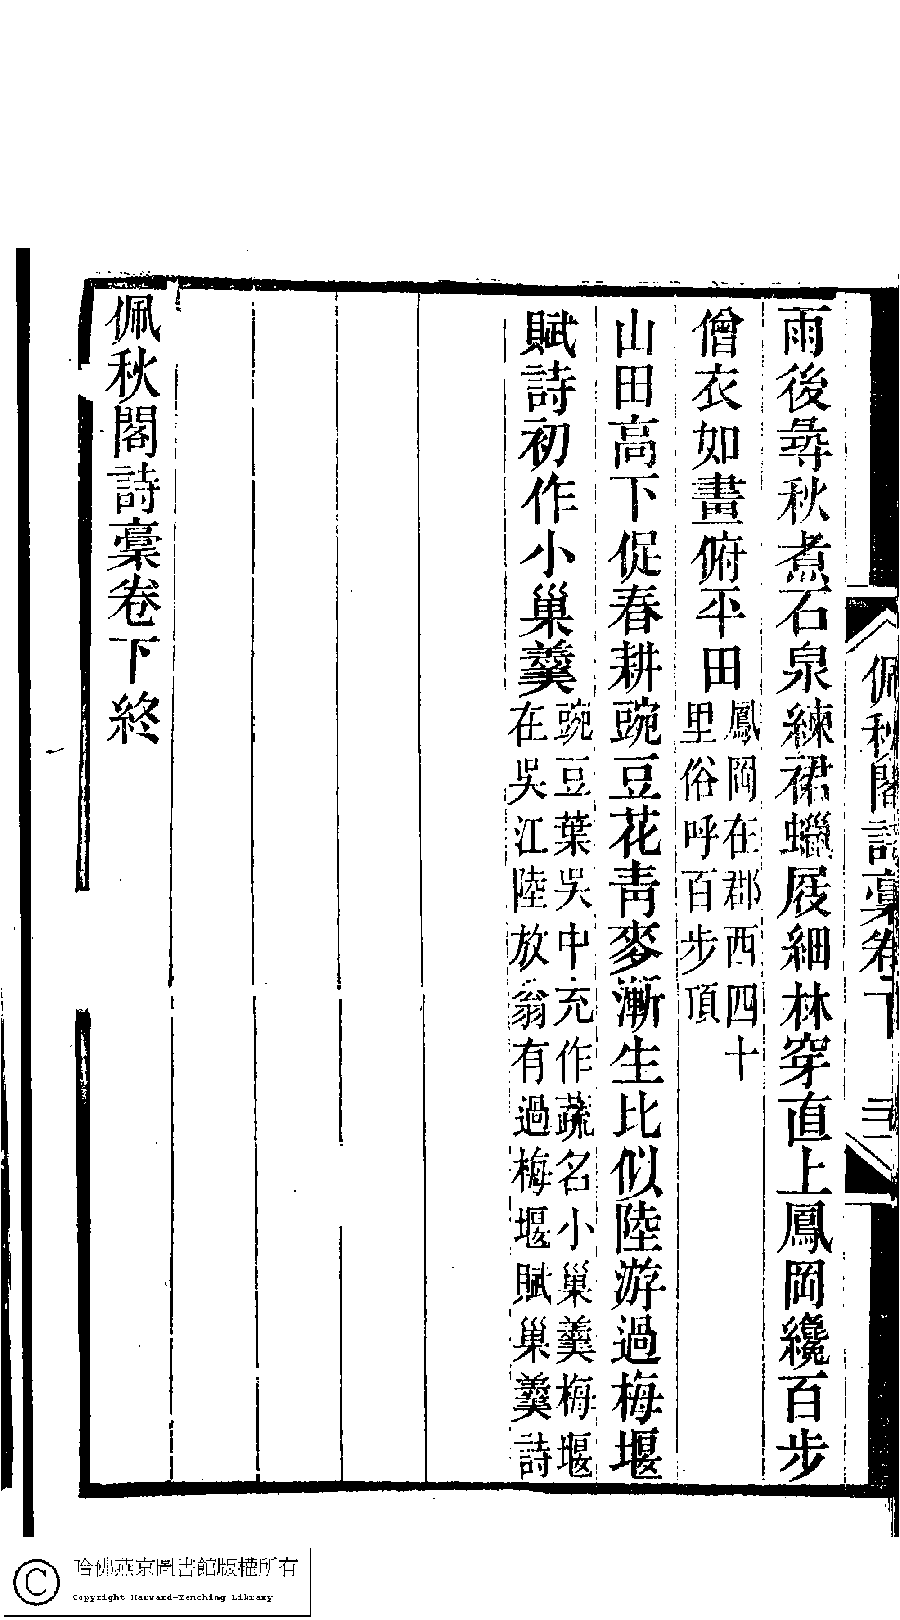 雨後尋秋煮石泉練裙蠟屐細林穿直上鳳岡纔百步
僧衣如畫俯平田鳳岡在郡西四十
里俗呼百步頂
山田高下促春耕豌豆花青麥漸生比似陸游過梅堰
賦詩初作小巢羹豌豆葉吳中充作蔬名小巢羹梅堰
在吳江陸放翁有過梅堰賦巢羹詩
佩秋閣詩稾卷下終
佩秋閣詩稾卷下
哈佛燕京圖書館版權所有
Copyright Harvard-Yenching Library